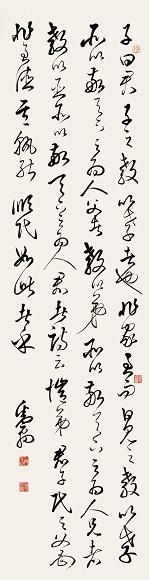 子曰君子之教以孝也非家至而日見之教以孝
所以敬天下之為人父者教以弟所以敬天下之為人兄者
教以臣所以敬天下之為人君者詩云愷弟君子民之父母
非至德其孰能順民如此者乎